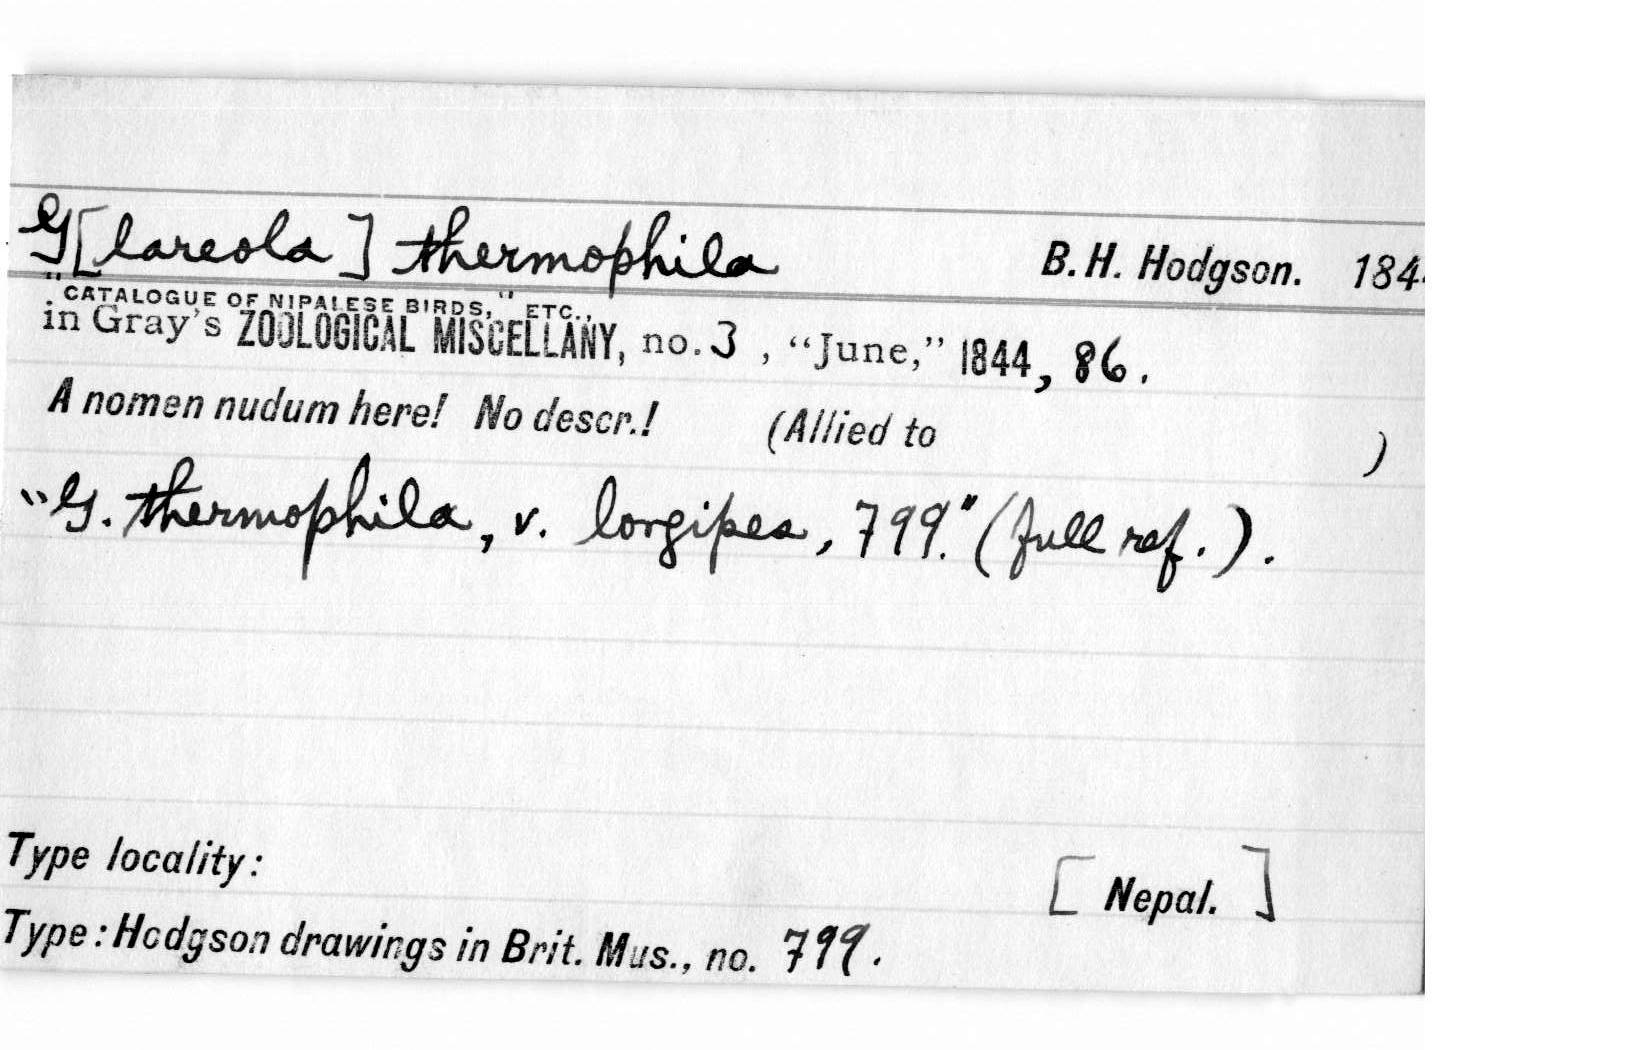 G[lareola] thermophila B. H. Hodgson. 184
"CATALOGUE OF NIPALESE BIRDS," ETC.,
in Gray's ZOOLOGICAL MISCELLANY, no. 3, “June,” 1844, 86.
A nomen nudum here! No descr.! (Allied to )
"G. thermophila, v. longipes, 799." (full ref.).
Type locality: [Nepal.]
Type: Hodgson drawings in Brit. Mus., no. 799.